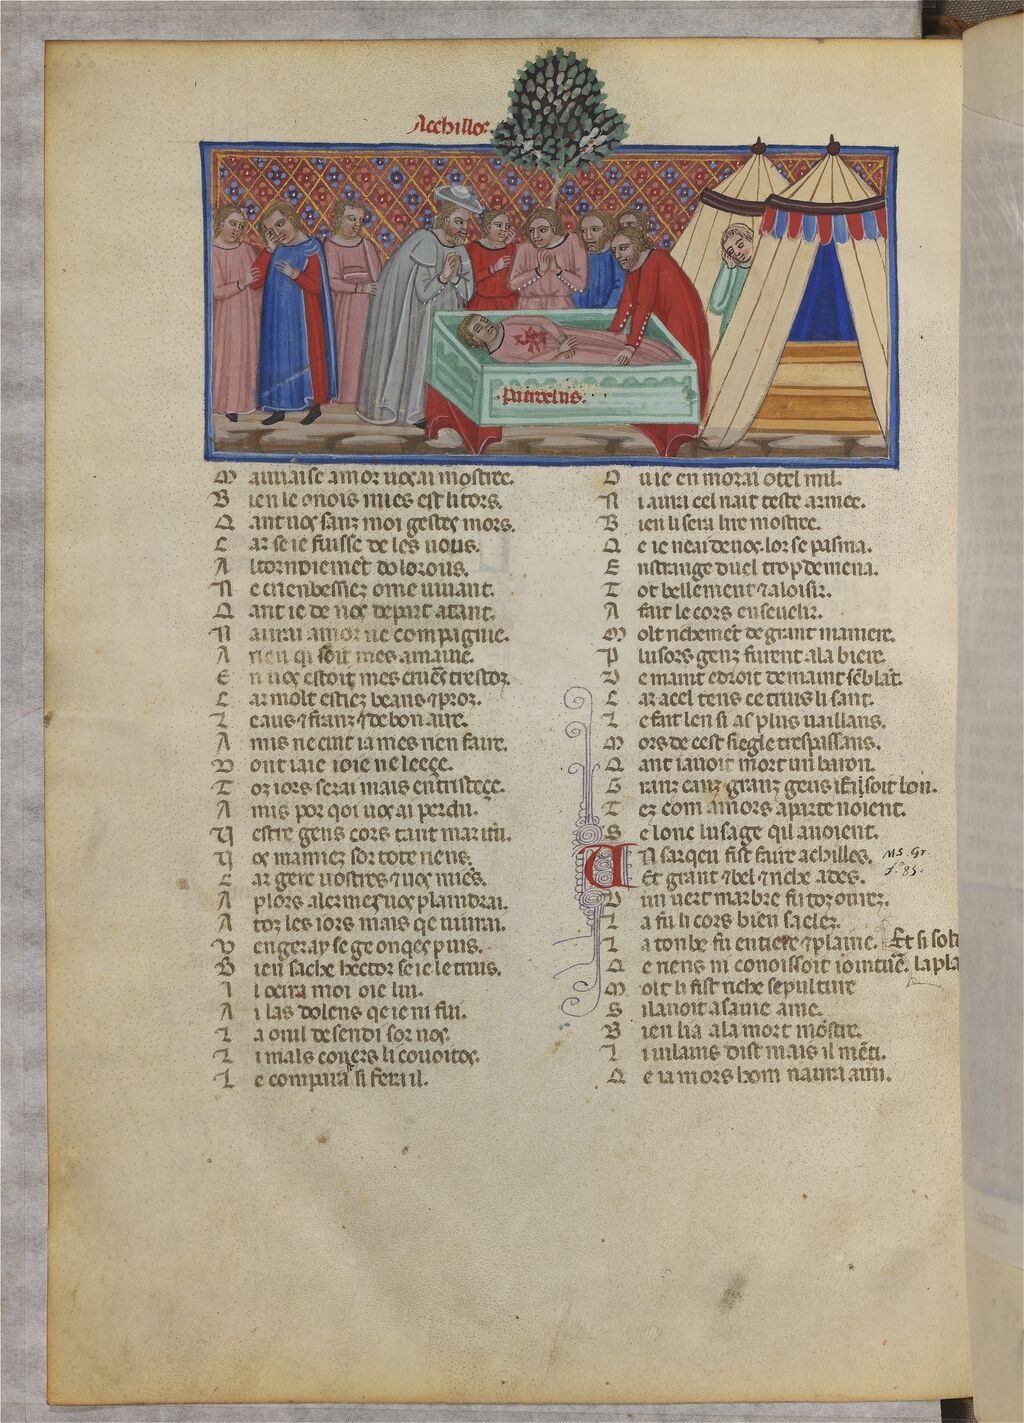 Acchilles
Patroclus.
Mauuaise amor uos ai mostree.
Bien le conois mies est li tors.
Qant uos sanz moi gestes mors.
Car se ie fuisse de les uous.
Al torndiemēt dolorous.
Ne crienbessiez ome uiuant.
Qant ie de uos depart atant.
Naurai amor ne compagnie.
A rien qi soit mes amaine.
En uos estoit mes cuers tresor.
Car molt estiez beaus ⁊ proz.
Leaus ⁊ franz ⁊ de bon aire.
Amis ne cuit ia mes rien faire.
Dont iaie ioie ne leece.
Toz iors serai mais en tristece.
Amis por qoi uos ai perdu.
Uestre gens cors tant mar i fu.
Uos mamiez sor tote riens.
Car gere uostres ⁊ uos miens.
A plors a lermes uos plaindrai.
A toz les iors mais qe uiurai.
Uengeray se ge onqes puis.
Bien sache hector se ie le truis.
Il ocira moi o ie lui.
Ai las dolens qe ie ni fui.
La o uil desendi sor uos.
Li mals couers li couoitos.
Le compara si feri il.
O uie en morai o tel mil.
Ni aura cel nait teste armee.
Bien li sera lire mostree.
Qe ie neai de uos. lor se pasma.
Enstrange duel trop demena.
Tot bellement ⁊ a loisir.
A fait le cors enseuelir.
Molt richemēt de grant maniere.
Plusors genz furent a la biere.
De maint edroit de maint sēblāt.
Car a cel tens ce truis lisant.
Le fait len si as plus uaillans.
Mors de cest siegle trespassans.
Qant i auoit mort un baron.
Granz canz granz gens ifust soit bon.
Tez com a mors aparte noient.
Selonc lusage qil auoient.
Un sarqeu fist faire achilles.
M.S. Gr.
f.º 85.
Et grant ⁊ bel ⁊ riche ades.
Dun uert marbre fu toz ouurez.
La fu li cors bien saelez.
La tonbe fu entiere ⁊ plaine. Et si solt
Qe riens ni conoissoit iointure. la pla
Molt li fist riche sepulture
Sil auoit a sauie ame.
Bien li a a la mort mostre.
Li uilains dist mais il mēti.
Qe ia mors hom naura ami.